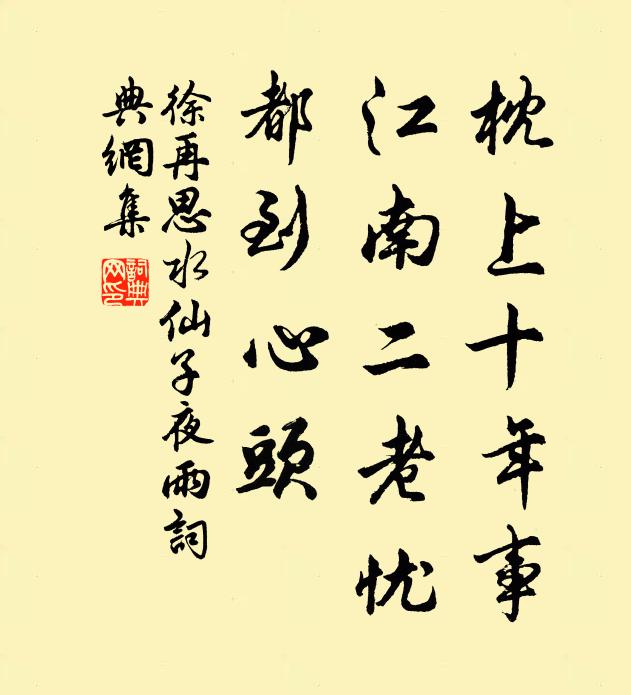 枕上十年事
江南二老忧
都到心頭
徐再思水仙子夜雨詞
典網集
詞典网印